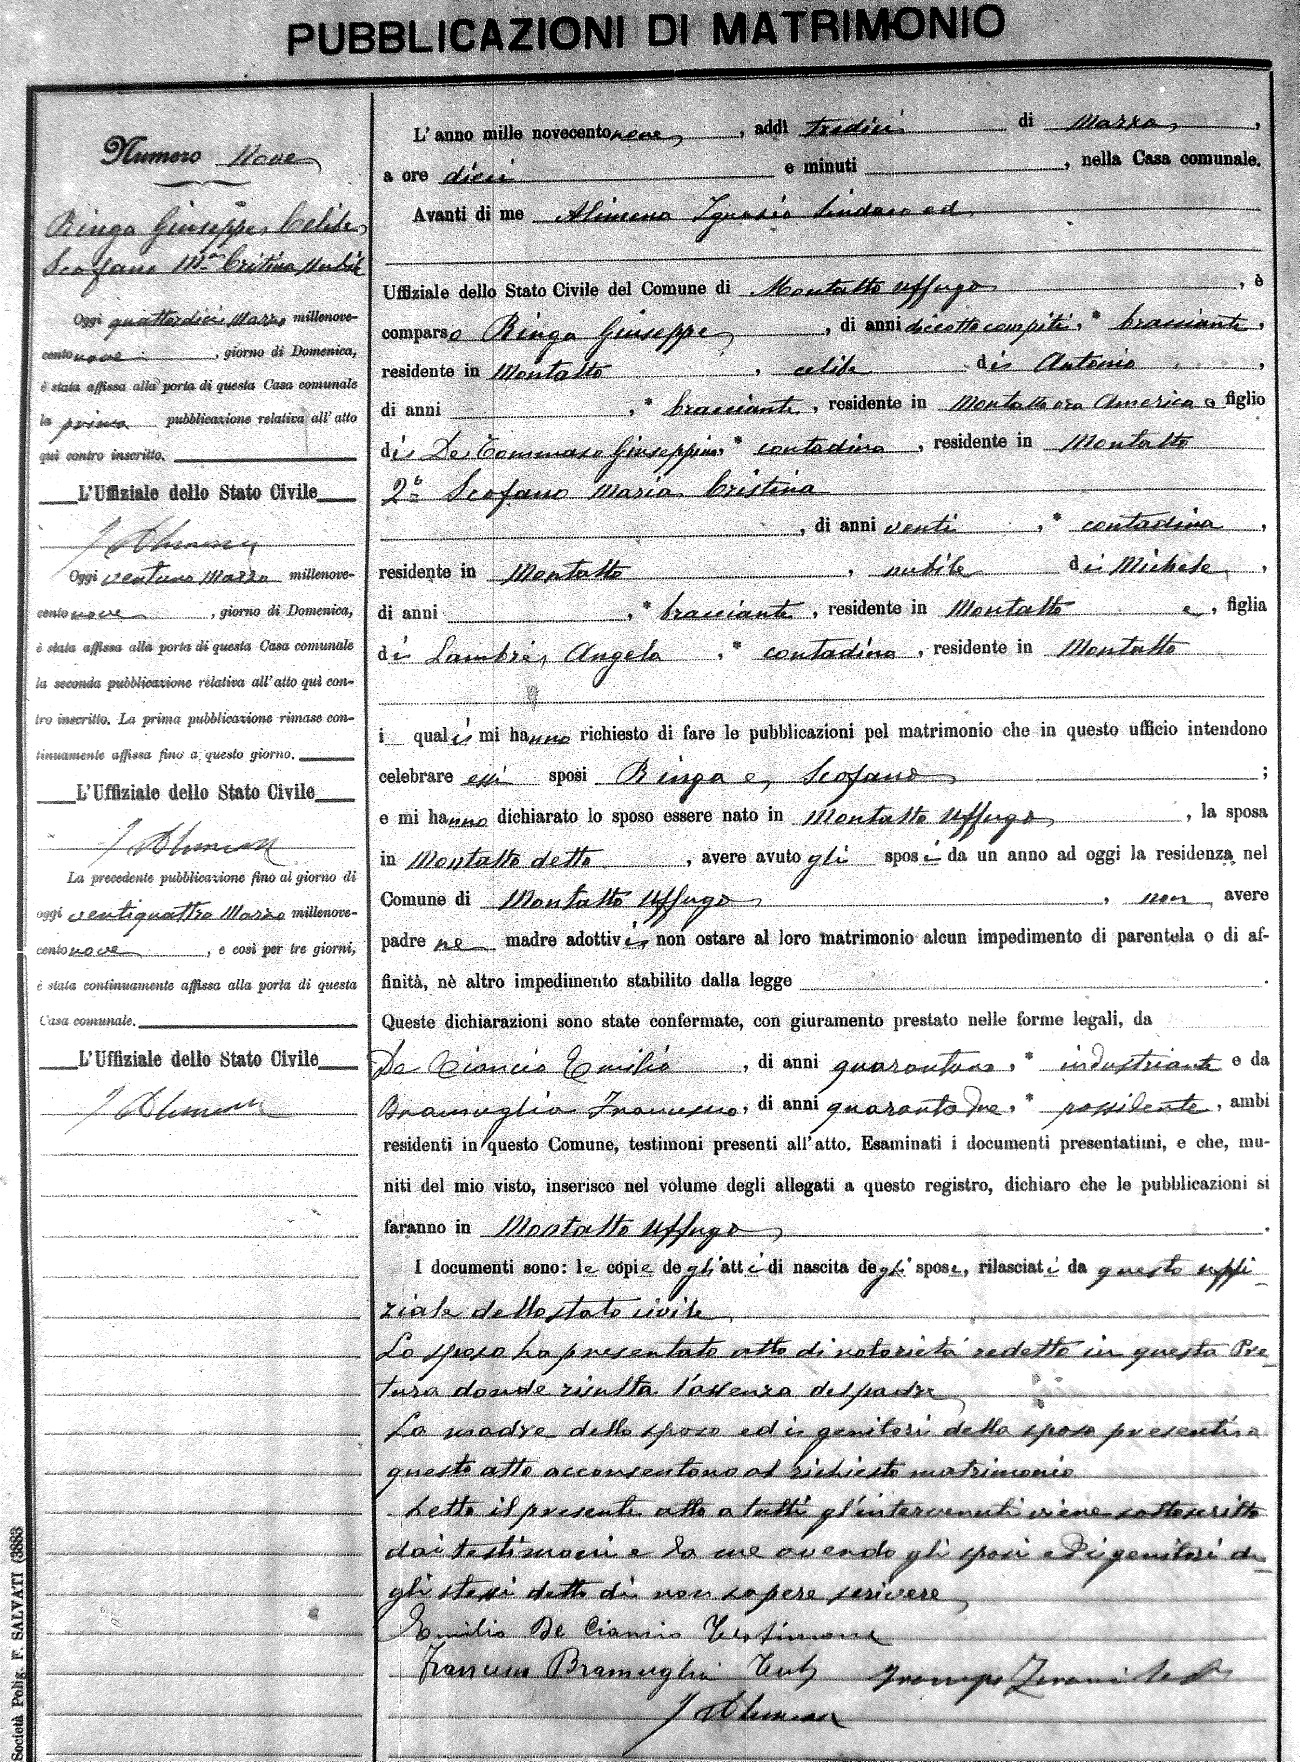 PUBBLICAZIONI DI MATRIMONIO
Numero Nove
Ringa Giuseppe, Celibe,
Scofano Mª Cristina, Nubile
Oggi quattordici Marzo millenove-
cento nove, giorno di Domenica,
è stata affissa alla porta di questa Casa comunale
la prima pubblicazione relativa all'atto
quì contro inscritto.
L'Uffiziale dello Stato Civile
Oggi ventuno Marzo millenove-
cento nove, giorno di Domenica,
è stata affissa alla porta di questa Casa comunale
la seconda pubblicazione relativa all'atto quì con-
tro inscritto. La prima pubblicazione rimase con-
tinuamente affissa fino a questo giorno.
L'Uffiziale dello Stato Civile
La precedente pubblicazione fino al giorno di
oggi ventiquattro Marzo millenove-
cento nove, e così per tre giorni,
è stata continuamente affissa alla porta di questa
Casa comunale.
L'Uffiziale dello Stato Civile
L'anno mille novecento nove, addì tredici di Marzo,
a ore dieci e minuti , nella Casa comunale.
Avanti di me Alimena Ignazio Sindaco ed
Uffiziale dello Stato Civile del Comune di Montalto Uffugo, è
comparso Ringa Giuseppe, di anni diciotto compiti, * bracciante,
residente in Montalto, celibe di Antonio,
di anni , * bracciante, residente in Montalto ora America e figlio
di De Tommaso Giuseppina, * contadina, residente in Montalto
2ª Scofano Maria Cristina
, di anni venti, * contadina,
residente in Montalto, nubile di Michele,
di anni , * bracciante, residente in Montalto e, figlia
di Lambré, Angela, * contadina, residente in Montalto
i quali mi hanno richiesto di fare le pubblicazioni pel matrimonio che in questo ufficio intendono
celebrare essi sposi Ringa e, Scofano ;
e mi hanno dichiarato lo sposo essere nato in Montalto Uffugo, la sposa
in Montalto detto, avere avuto gli sposi da un anno ad oggi la residenza nel
Comune di Montalto Uffugo, non avere
padre nè madre adottivi, non ostare al loro matrimonio alcun impedimento di parentela o di af-
finità, nè altro impedimento stabilito dalla legge .
Queste dichiarazioni sono state confermate, con giuramento prestato nelle forme legali, da
De Ciancio Emilio, di anni quarantuno, * industriante e da
Bramuglia Francesco, di anni quarantadue, * possidente, ambi
residenti in questo Comune, testimoni presenti all'atto. Esaminati i documenti presentatimi, e che, mu-
niti del mio visto, inserisco nel volume degli allegati a questo registro, dichiaro che le pubblicazioni si
faranno in Montalto Uffugo.
I documenti sono: le copie degli atti di nascita degli sposi, rilasciati da questo uffi-
ziale dello stato civile
Lo sposo ha presentato atto di notorietà redetto in questa Pre-
tura donde risulta l'assenza del padre
La madre dello sposo ed i genitori della sposa presenti a
questo atto acconsentono al richiesto matrimonio
Letto il presente atto a tutti gl'intervenuti viene sottoscritto
dai testimoni e da me avendo gli sposi e di genitori de
gli stessi detto di non sapere scrivere
Emilio De Ciancio Testimone
Francesco Bramuglia Test.
Società Polig. F. SALVATI 13883